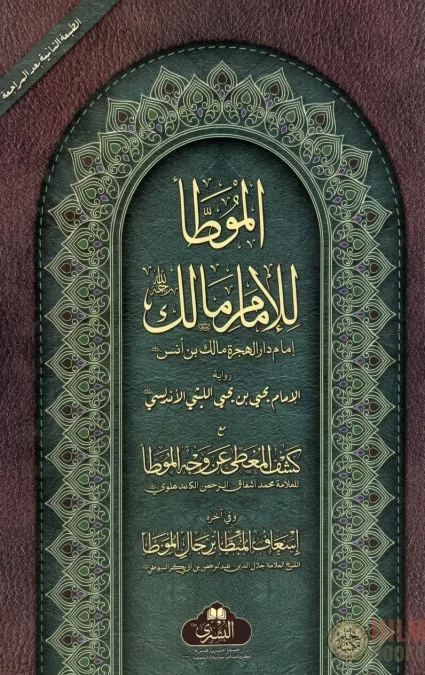 الطبعة الثانية بعد المراجعة
الموطأ
للإمام مالك رحمه الله
إمام دار الهجرة مالك بن أنس
رواية
الإمام يحيى بن يحيى الليثي الأندلسي
مع
كشف المغطى عن وجه الموطا
للعلامة محمد أشفاق الرحمن الكاندهلوي
وفي آخره
إسعاف المبطا برجال الموطا
للشيخ العلامة جلال الدين عبد الرحمن بن أبي بكر السيوطي
البشرى
BOOKS